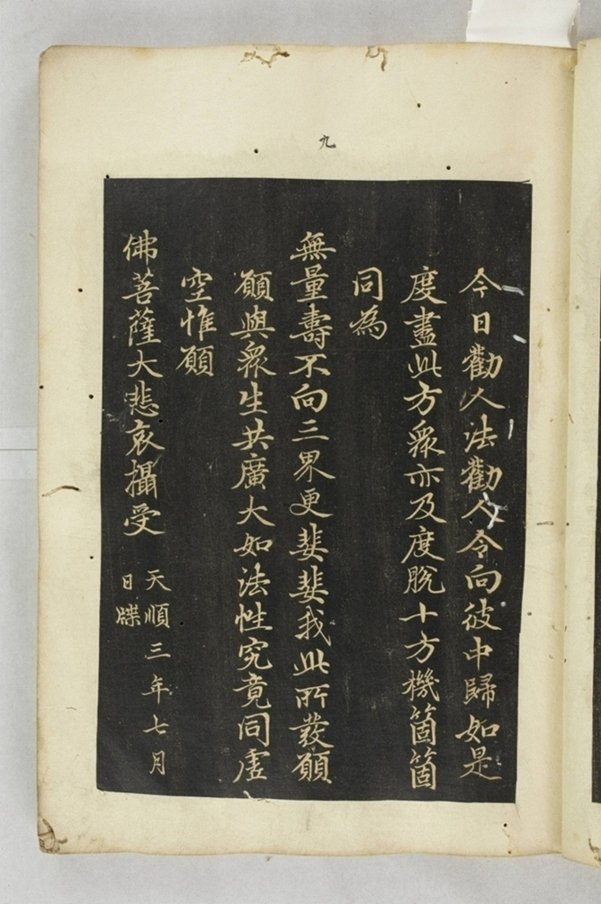 九
今日勸人法勸人令向彼中歸如是
度盡此方衆亦及度脫十方機箇箇
同為
無量壽不向三界更婓婓我此所發願
願與衆生共廣大如法性究竟同虛
空惟願
佛菩薩大悲哀攝受
天順三年七月
日牒